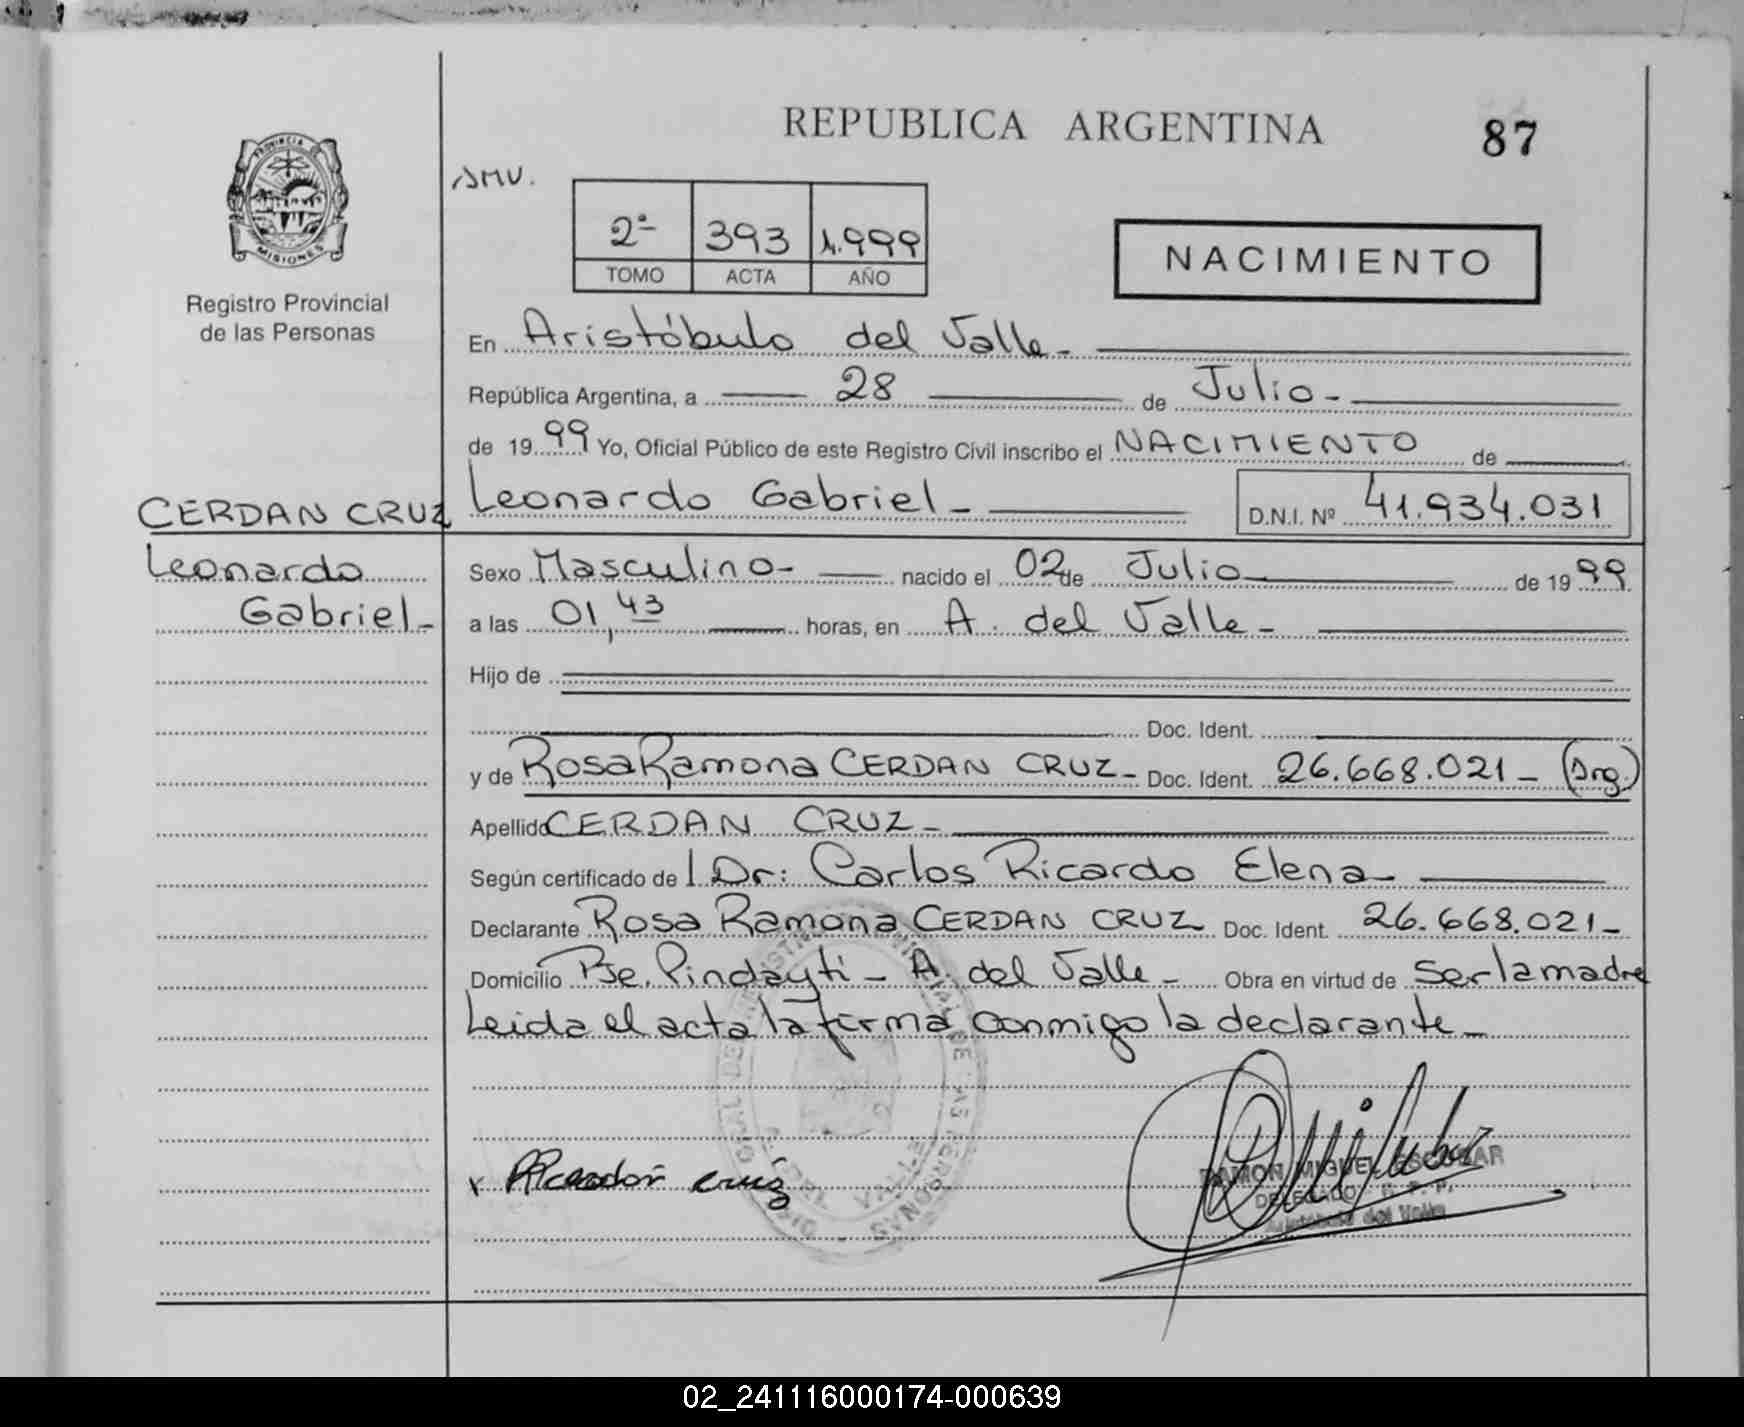 REPUBLICA ARGENTINA
87
PROVINCIA DE
MISIONES
Registro Provincial
de las Personas
SMV.
2ª 393 1.999
TOMO ACTA AÑO
NACIMIENTO
En Aristóbulo del Valle -
República Argentina, a 28 de Julio -
de 1999 Yo, Oficial Público de este Registro Civil inscribo el NACIMIENTO de
CERDAN CRUZ
Leonardo Gabriel - D.N.I. Nº 41.934.031
Leonardo
Gabriel -
Sexo Masculino - nacido el 02 de Julio - de 1999
a las 01,43 horas, en A. del Valle -
Hijo de
Doc. Ident.
y de Rosa Ramona CERDAN CRUZ - Doc. Ident. 26.668.021 - (Arg.)
Apellido CERDAN CRUZ -
Según certificado de l Dr: Carlos Ricardo Elena -
Declarante Rosa Ramona CERDAN CRUZ Doc. Ident. 26.668.021 -
Domicilio Pje. Pindayti - A. del Valle - Obra en virtud de ser la madre
Leida el acta la firma conmigo la declarante -
x cruz
RAMON MIGUEL ESCOBAR
DELEGADO R. P. P.
Aristóbulo del Valle
02_241116000174-000639